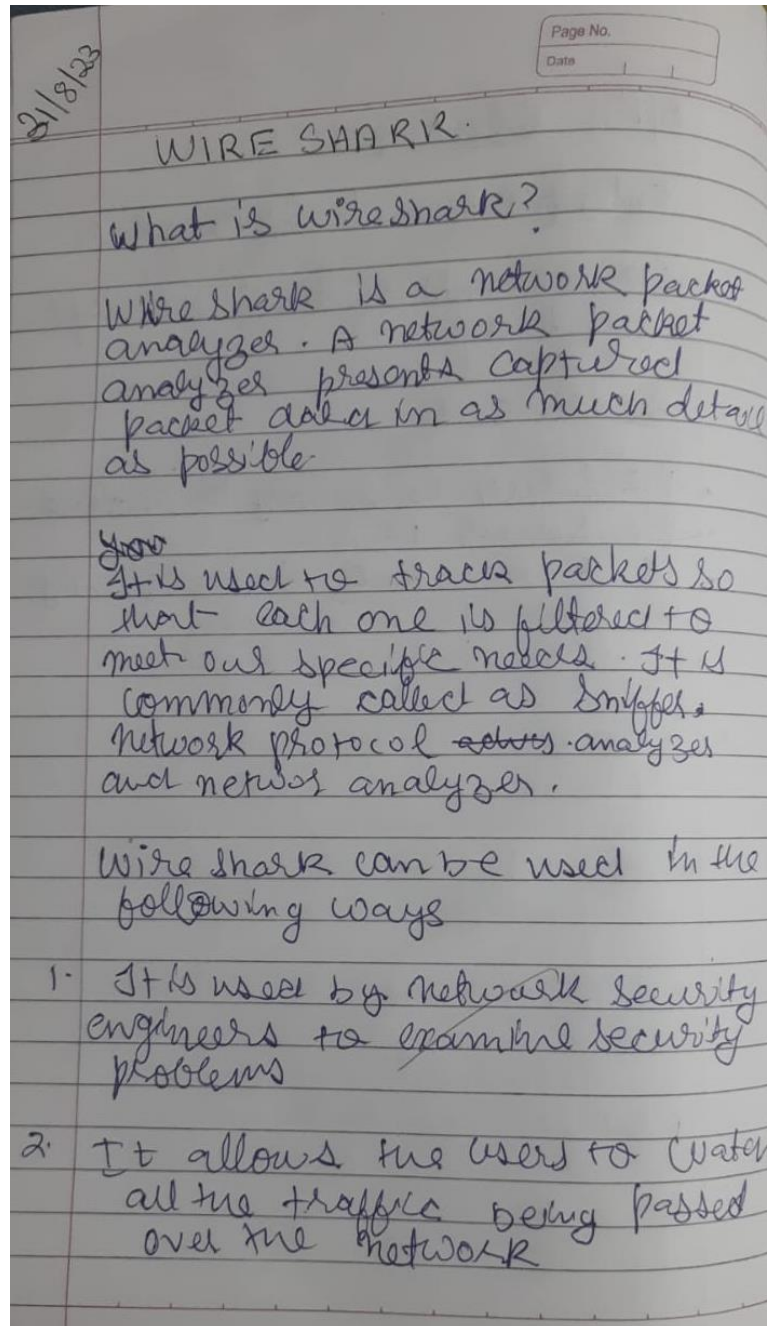 Page No.
Date
21/8/23
WIRE SHARK.
What is wireshark?
Wire shark is a network packet
analyzer. A network packet
analyzer presents captured
packet data in as much detail
as possible.
It is used to track packets so
that each one is filtered to
meet our specific needs. It is
commonly called as sniffer,
network protocol analyzer
and networ analyzer.
Wire shark can be used in the
following ways
1. It is used by network security
engineers to examine security
problems
2. It allows the users to watch
all the traffic being passed
over the network